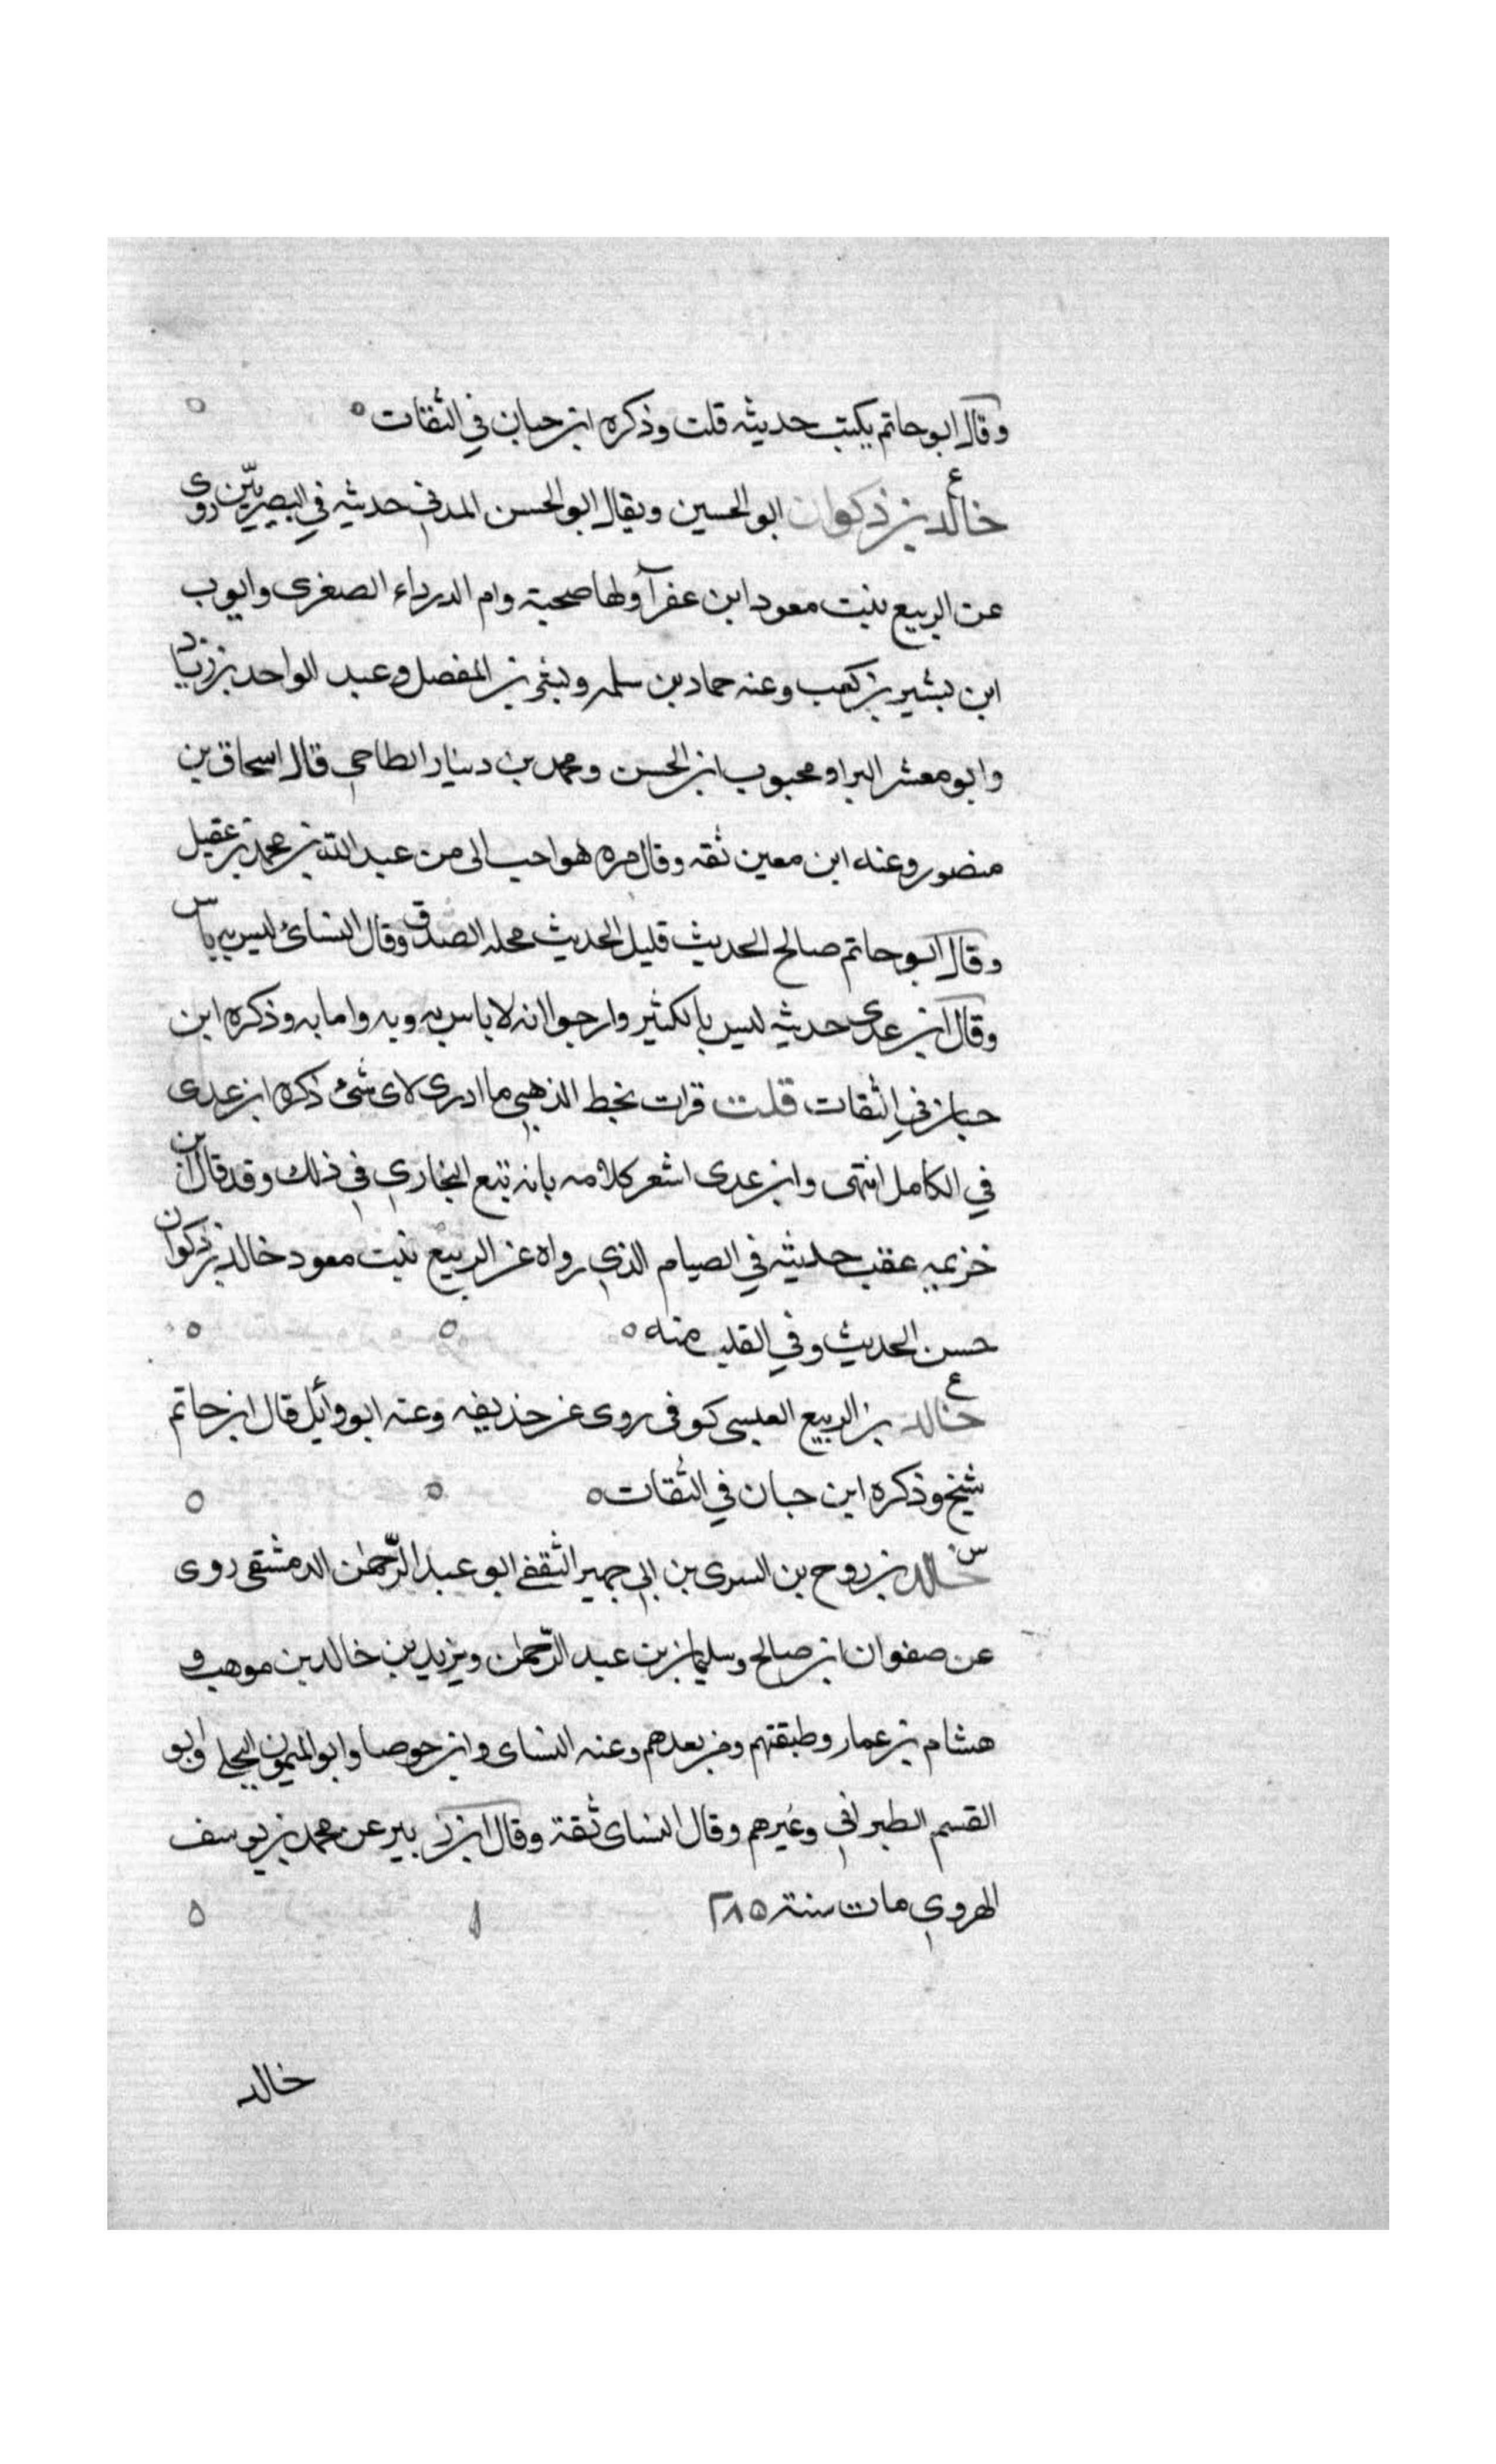 وقال ابو حاتم يكتب حديثه قلت وذكره ابن حبان في الثقات ه
ع
خالد بن ذكوان ابو الحسين ويقال ابو الحسن المدني حديثه في البصريّين روى
عن الربيع بنت معود ابن عفرآ ولها صحبة وام الدرداء الصغرى وايوب
ابن بشير بن كعب وعنه حماد بن سلمه وبشر بن المفضل وعبد الواحد بن زياد
وابو معشر البرا ومحبوب ابن الحسن ومحمد بن دينار الطاحي قال اسحاق بن
منصور وعنه ابن معين ثقه وقال مره هو احب الى من عبد الله بن محمد بن عقيل
وقال ابو حاتم صالح الحديث قليل الحديث محله الصدق وقال النسائ ليس به باس
وقال ابن عدى حديثه ليس بالكثير وارجوا انه لا باس به وبه وامابه وذكره ابن
حبان في الثقات قلت قرات بخط الذهبي ما ادرى لاى شئ ذكره ابن عدى
في الكامل انتهى وابن عدى اشعر كلامه بانه تبع البخاري في ذلك وقد قال ابن
خزيمه عقب حديثه في الصيام الذي رواه عن الربيع بنت معود خالد بن ذكوان
حسن الحديث وفي القلب منه ه
ع
خالد بن الربيع العبسى كوفى روى عن حذيفه وعنه ابو وائل قال ابن حاتم
شيخ وذكره ابن حبان في الثقات ه
س
خالد بن روح بن السرى بن ابي جهير الثقفي ابو عبد الرّحمن الدمشقى روى
عن صفوان ابن صالح وسليمان بن عبد الرّحمن ويزيد بن خالد بن موهب و
هشام بن عمار وطبقتهم ومن بعدهم وعنه النساى وابن جوصا وابو الميمون البجلي وابو
القسم الطبراني وغيرهم وقال النساى ثقة وقال ابن زبير عن محمد بن يوسف
الهروي مات سنة ٢٨٥
خالد